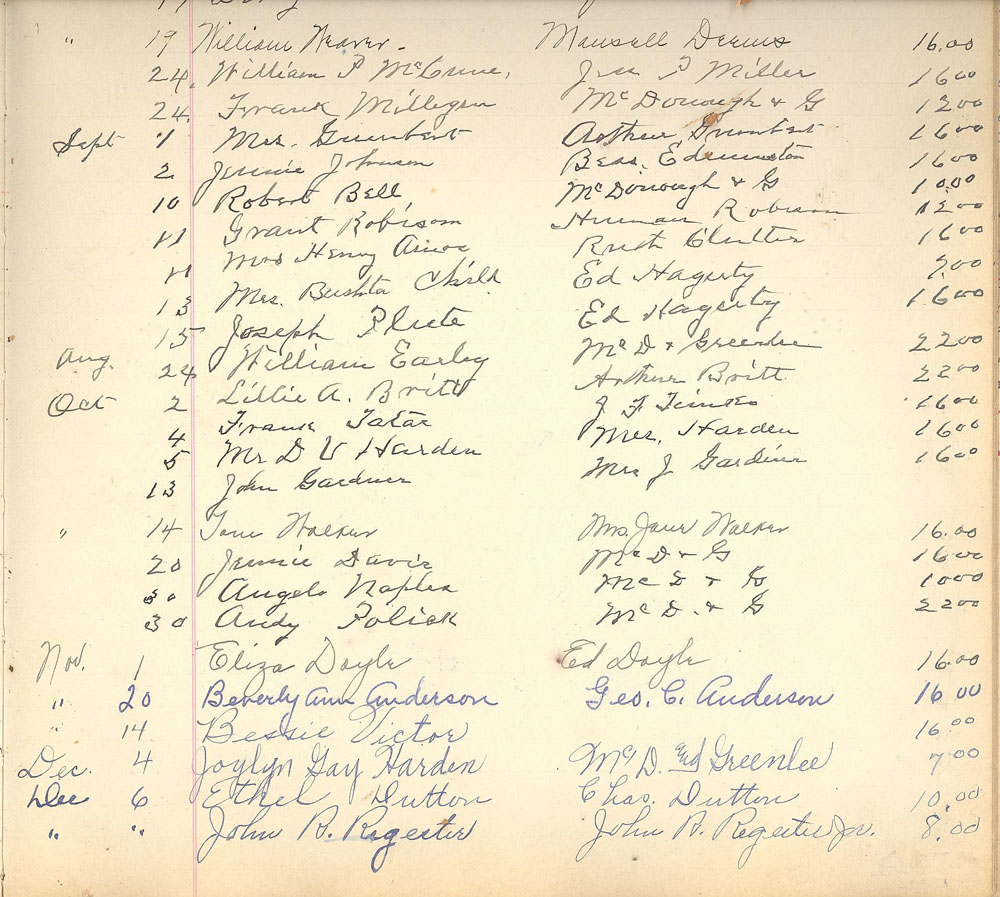 " 19 William Weaver. Mansell Deems 16.00
24. William P McCune, Jess P Miller 1600
24. Frank Millegan McDonough & G 1200
Sept 1 Mrs. Gumbert Arthur Gumbert 1600
2 Jennie Johnson Beas. Edmunston 1600
10 Robert Bell McDonough & G 1000
11 Grant Robison Human Robison 1200
11 Mrs Henry Amos Ruth Clutter 1600
13 Mrs. Bushta Child Ed Hagerty 700
15 Joseph Plute Ed Hagerty 1600
Aug. 24 William Earley McD & Greenlee 2200
Oct 2 Lillie A. Britt Arthur Britt 2200
4 Frank Tatar J F 1600
5 Mr D V Harden Mrs. Harden 1600
13 John Gardner Mrs J Gardiner 1600
" 14 Tom Walker Mrs. Jane Walker 16.00
20 Jennie Davis McD & G 1600
30 Angelo Naples Mc D & G 1000
30 Andy Polick Mc D. & G 2200
Nov. 1 Eliza Doyle Ed Doyle 16.00
" 20 Beverly Ann Anderson Geo. C. Anderson 16 00
" 14 Bessie Victor 16 00
Dec. 4 Joylyn Gay Harden McD. and Greenlee 7 00
Dec 6 Ethel Dutton Chas. Dutton 10.00
" " John B. Regester John B. Regester Jr. 8.00